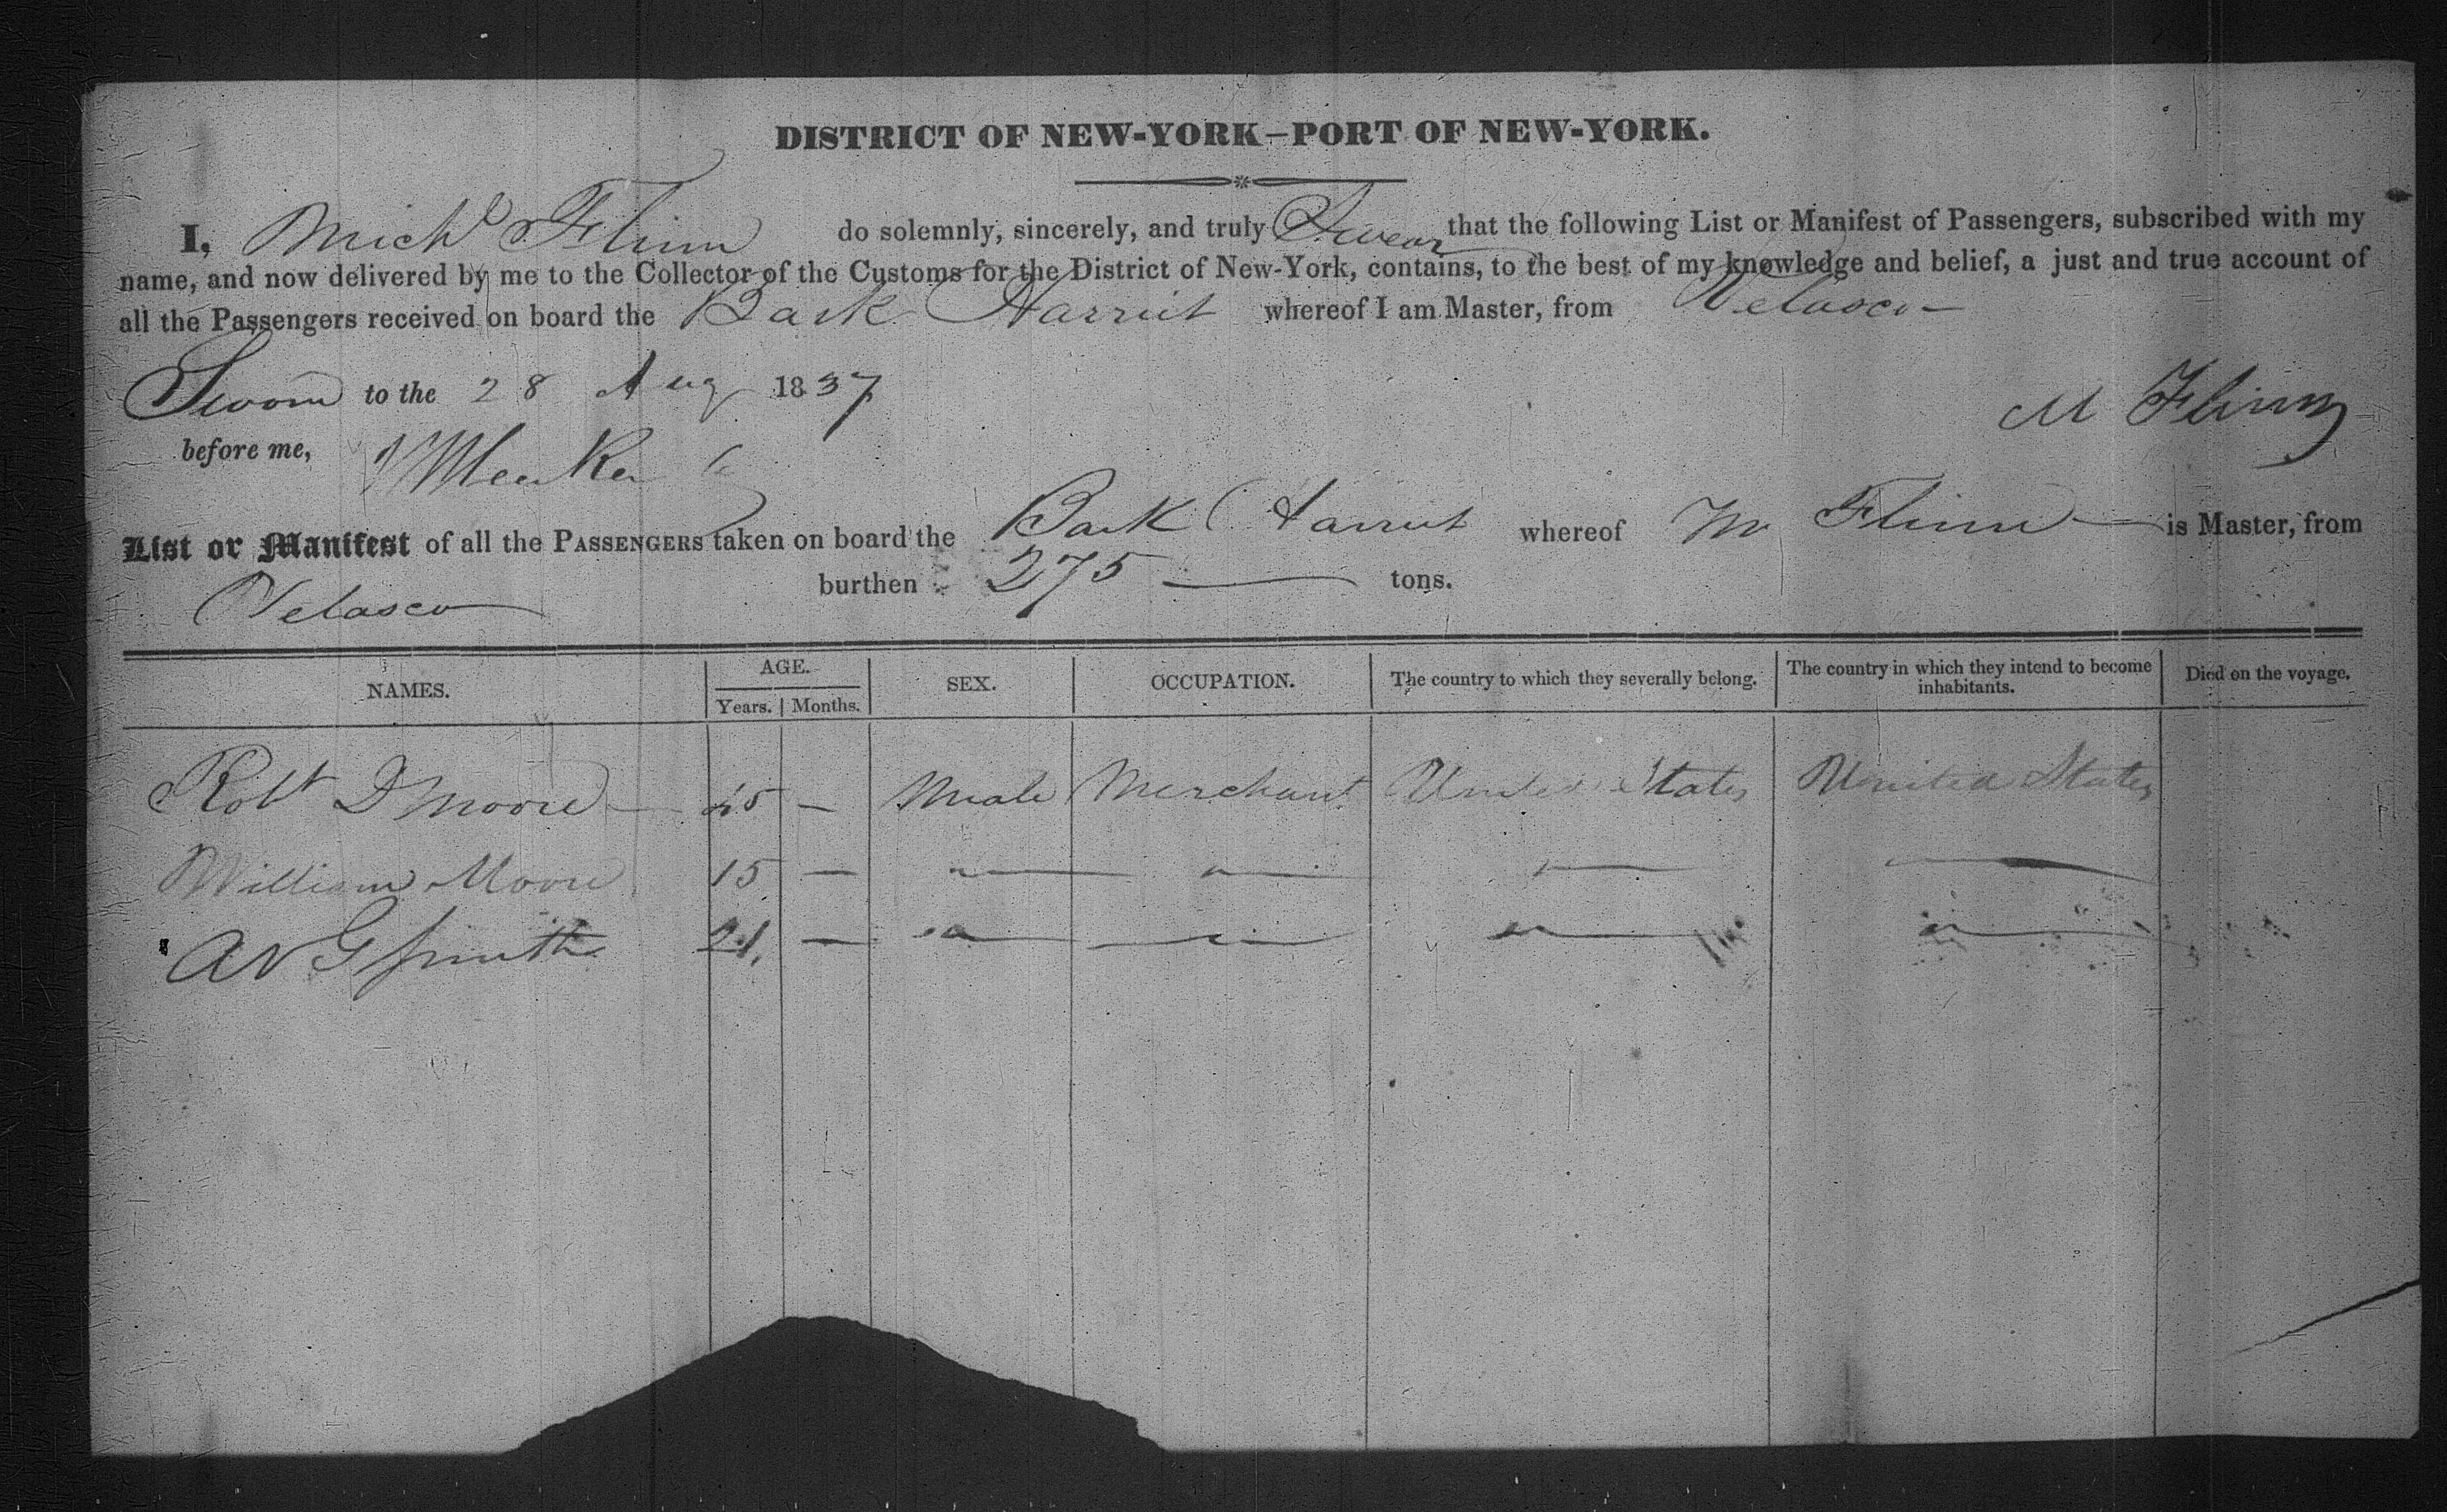 DISTRICT OF NEW-YORK–PORT OF NEW-YORK.
I, Michl Flinn do solemnly, sincerely, and truly Swear that the following List or Manifest of Passengers, subscribed with my
name, and now delivered by me to the Collector of the Customs for the District of New-York, contains, to the best of my knowledge and belief, a just and true account of
all the Passengers received on board the Bark Harriet whereof I am Master, from Velasco
Sworn to the 28 Aug 1837
M Flinn
before me,
List or Manifest of all the PASSENGERS taken on board the Bark Harriet whereof M Flinn is Master, from
Velasco burthen 275 tons.
NAMES. AGE. Years. Months. SEX. OCCUPATION. The country to which they severally belong. The country in which they intend to become inhabitants. Died on the voyage.
Robt D Moore 45 — Male Merchant United States United States
William Moore 15 — — — — —
A N G Smith 21 — — — — —